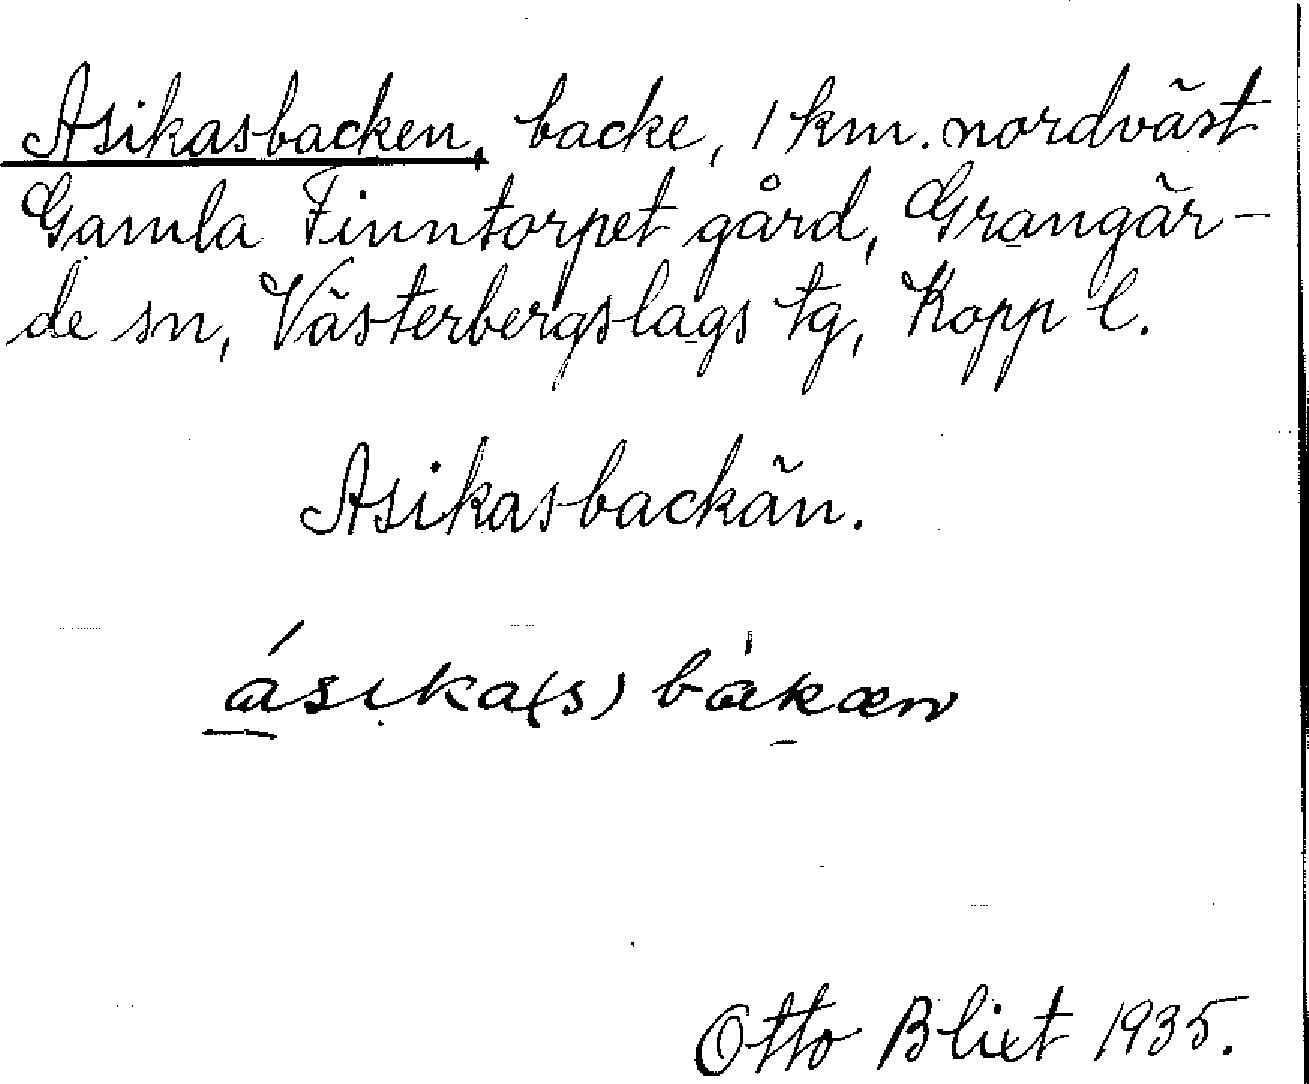 Asikasbacken, backe, 1 km. nordväst
Gamla Finntorpet gård, Grangär-
de sn, Västerbergslags tg, Kopp l.
Asikasbackän.
ásika(s)bàkæn
Otto Blixt 1935.